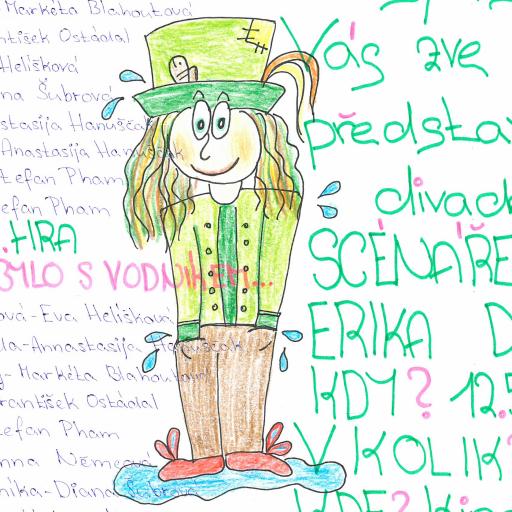 Markéta Blahoutová
ntišek Ostádal
Helíšková
na Šubrová
stasija Hanuščak
Anastasija Hanuščak
tefan Pham
efan Pham
.HRA
BYLO S VODNÍKEM...
ová-Eva Helíšková
la-Annastasija Hanuščak
y-Markéta Blahoutová
rantišek Ostádal
tefan Pham
nna Němcová
nika-Diana Šubrová
Vás zve
předsta
divad
SCÉNÁŘE
ERIKA D
KDY? 12.5
V KOLIK?
KDE? Kin